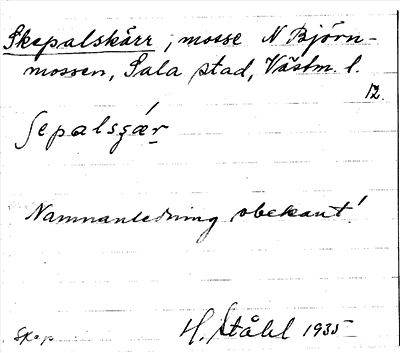 Skepalskärr, mosse N Björn-
mossen, Sala stad, Västm. l.
12.
ʃepalsçær
Namnanledning obekant!
H. Ståhl 1935
Skep